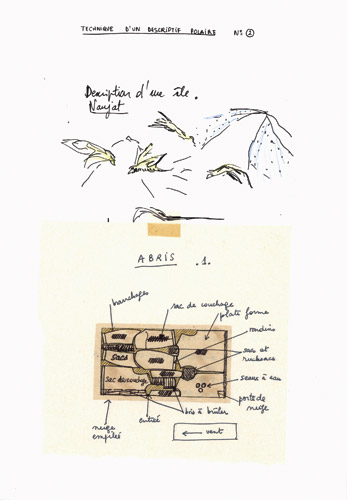 TECHNIQUE D'UN DESCRIPTIF POLAIRE N°
Description d'une île.
Naujat
ABRIS .1.
branchages
sac de couchage
plate forme
rondins
sacs
sacs et
sac de couchage
seaux à eau
porte de
neige
neige
empilée
entrée
bois à brûler
← vent